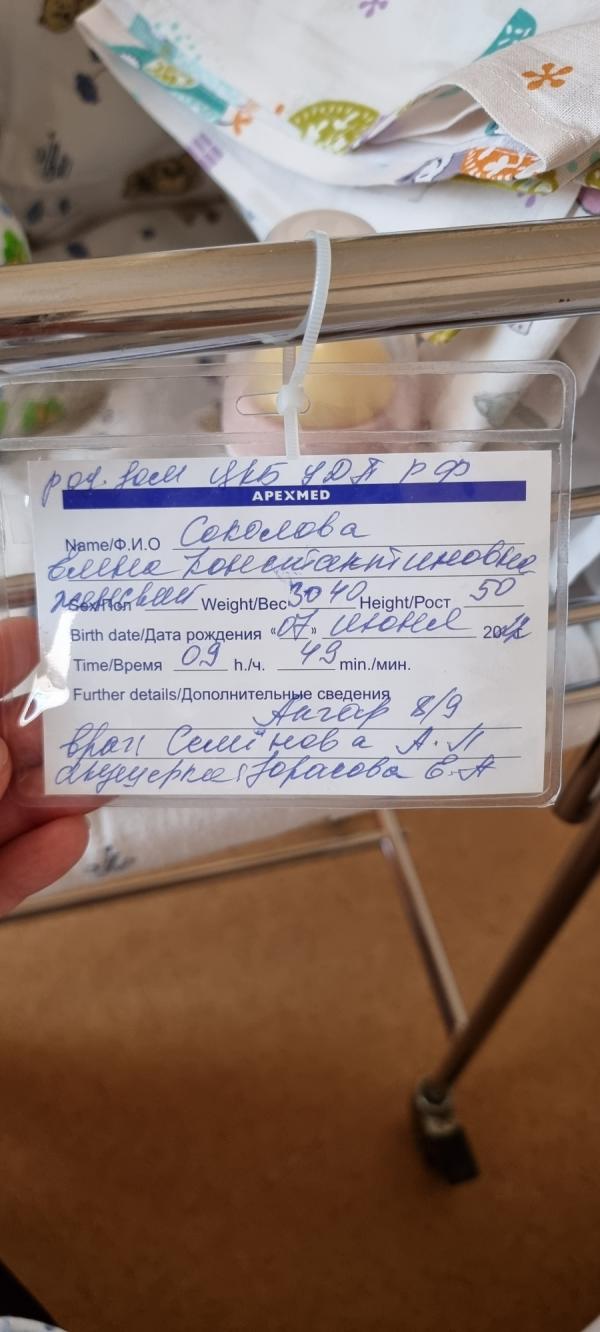 род. дом ЦКБ УДП РФ
APEXMED
Name/Ф.И.О Соколова
Елена Константиновна
Sex/Пол женский Weight/Вес 3040 Height/Рост 50
Birth date/Дата рождения «07» июня 20
Time/Время 09 h./ч. 49 min./мин.
Further details/Дополнительные сведения
Апгар 8/9
врач Семёнова А.П
акушерка: Е.А